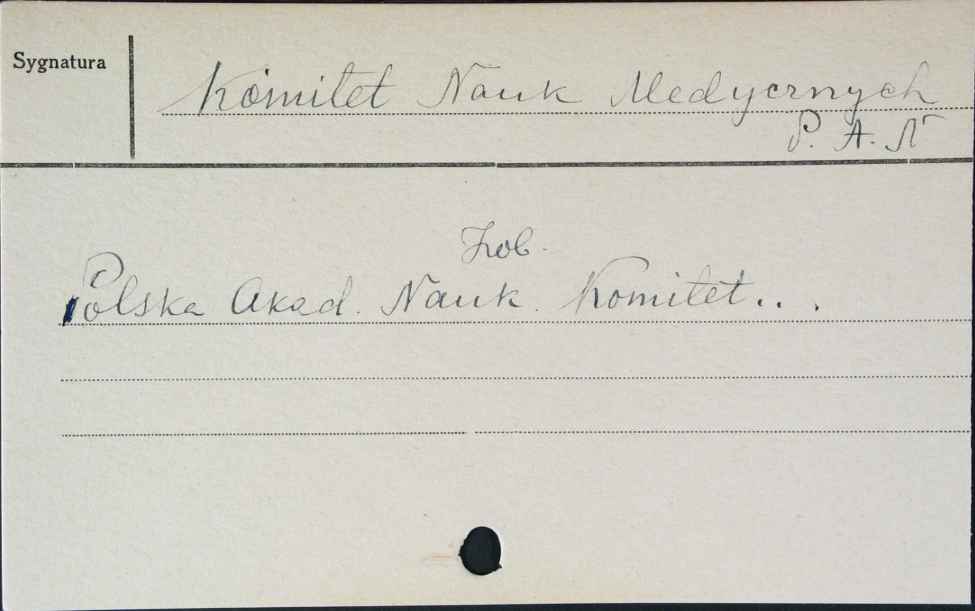 Sygnatura
Komitet Nauk Medycznych
P. A. N
Zob.
Polska Akad. Nauk. Komitet...